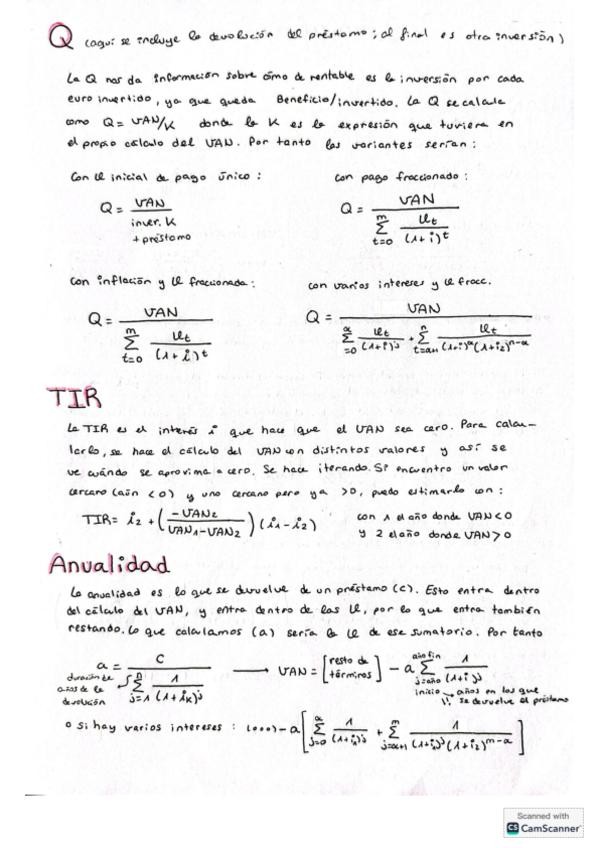 Q (aquí se incluye la devolución del préstamo; al final es otra inversión)
La Q nos da información sobre cómo de rentable es la inversión por cada
euro invertido, ya que queda Beneficio/invertido. La Q se calcula
como Q = VAN/K donde la K es la expresión que tuviera en
el propio cálculo del VAN. Por tanto las variantes serían:
Con U inicial de pago único:
Q = VAN / (inver. K + préstamo)
con pago fraccionado:
Q = VAN / (m Σ t=0 Ut/(1+i)^t)
con inflación y U fraccionada:
Q = VAN / (m Σ t=0 Ut/(1+i)^t)
con varios intereses y U fracc.
Q = VAN / (α Σ =0 Ut/(1+i)^j + n Σ t=α+1 Ut/(1+i)^α(1+i2)^n-α)
TIR
La TIR es el interés i que hace que el VAN sea cero. Para calcu-
larlo, se hace el cálculo del VAN con distintos valores y así se
ve cuándo se aproxima a cero. Se hace iterando. Si encuentro un valor
cercano (aún <0) y uno cercano pero ya >0, puedo estimarlo con:
TIR = i2 + (-VAN2 / (VAN1-VAN2)) (i1-i2)
con 1 el año donde VAN<0
y 2 el año donde VAN>0
Anualidad
La anualidad es lo que se devuelve de un préstamo (C). Esto entra dentro
del cálculo del VAN, y entra dentro de las U, por lo que entra también
restando. Lo que calculamos (a) sería la U de ese sumatorio. Por tanto
a = C / (n Σ j=1 1/(1+iK)^j) → VAN = [resto de términos] - a año fin Σ j=año inicio 1/(1+i)^j
duración de
años de la
devolución
años en los que
se devuelve el préstamo
o Si hay varios intereses: (...) - a [α Σ j=0 1/(1+i1)^j + m Σ j=α+1 1/(1+i1)^j(1+i2)^m-α]
Scanned with
CS CamScanner